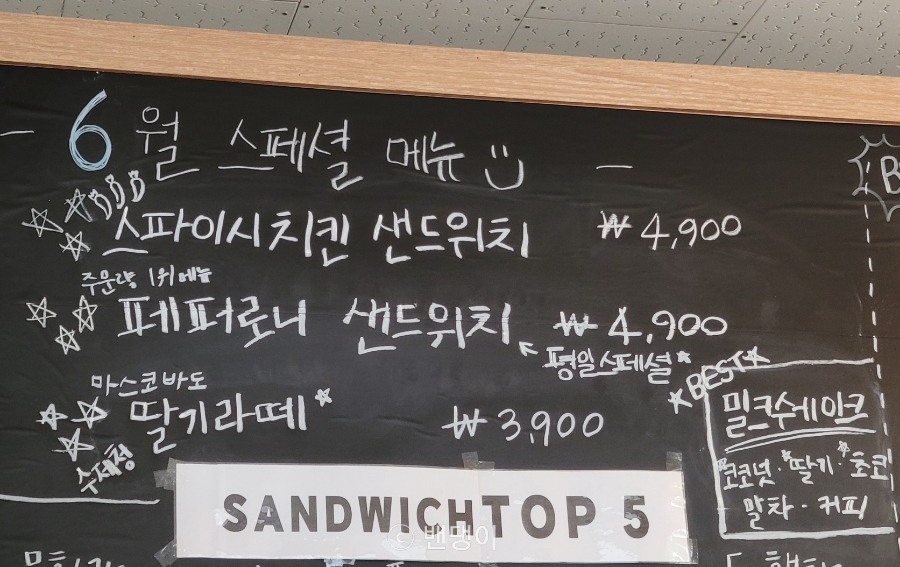 6월 스페셜 메뉴
스파이시치킨 샌드위치 ₩4,900
주문량 1위 메뉴
페퍼로니 샌드위치 ₩4,900
평일스페셜
마스코바도
딸기라떼 ₩3,900
수제청
BEST
밀크쉐이크
코코넛·딸기·초코
말차·커피
SANDWICHTOP 5
밴댕이